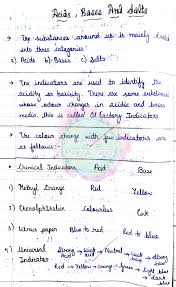 Acids, Bases And Salts
→ The substances around us is mainly divided
into three categories
a) Acids b) Bases c) Salts
→ The indicators are used to identify the
acidity or basicity. There are some substance
whose odour changes in acidic and basic
media, this is called Olfactory Indicators
→ The colour change with few indicators are
as follows:
Chemical Indicators Acid Base
1) Methyl Orange Red Yellow
2) Phenolphthalein Colourless Pink
3) Litmus paper Blue to red Red to blue
4) Universal Indicators
Strong Acid → Weak Acid → Neutral → Weak base → Strong base
Red → Yellow → Orange → Green → Light blue → dark blue